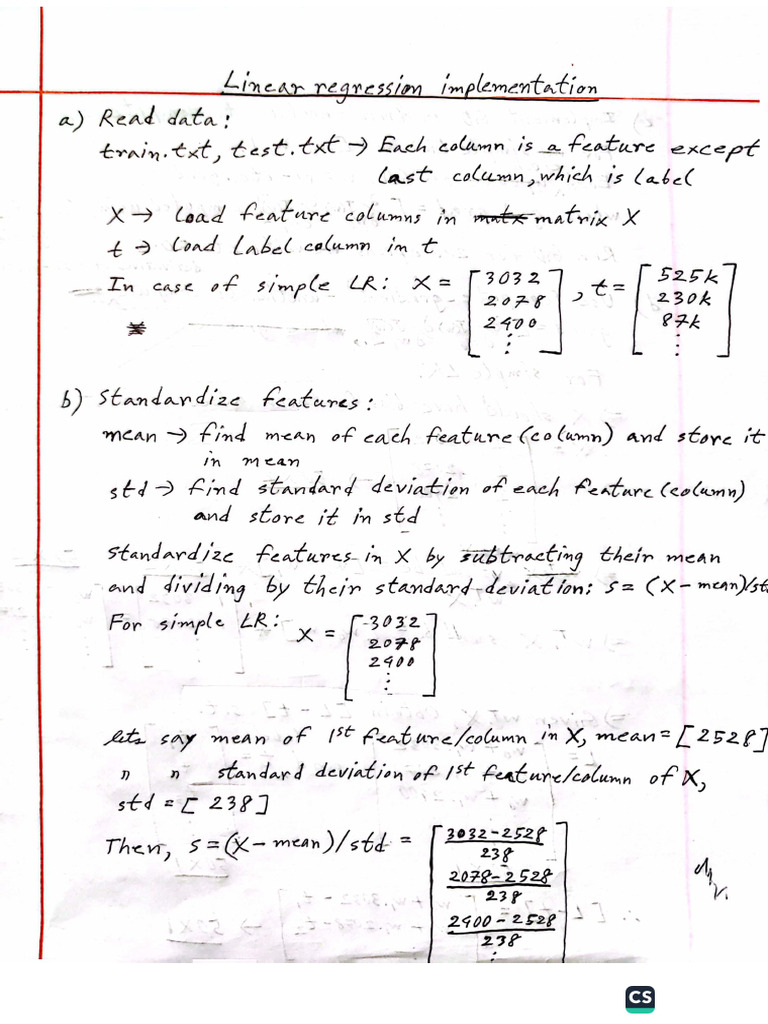 Linear regression implementation
a) Read data:
train.txt, test.txt → Each column is a feature except
last column, which is label
X → Load feature columns in matrix X
t → Load Label column in t
In case of simple LR: X = [3032 2078 2400 ⋮], t = [525k 230k 87k ⋮]
b) Standardize features:
mean → find mean of each feature (column) and store it
in mean
std → find standard deviation of each feature (column)
and store it in std
Standardize features in X by subtracting their mean
and dividing by their standard deviation: S = (X - mean)/std
For simple LR: X = [3032 2078 2400 ⋮]
lets say mean of 1st feature/column in X, mean = [2528]
" " standard deviation of 1st feature/column of X,
std = [238]
Then, S = (X - mean)/std = [(3032-2528)/238 (2078-2528)/238 (2400-2528)/238 ⋮]
CS